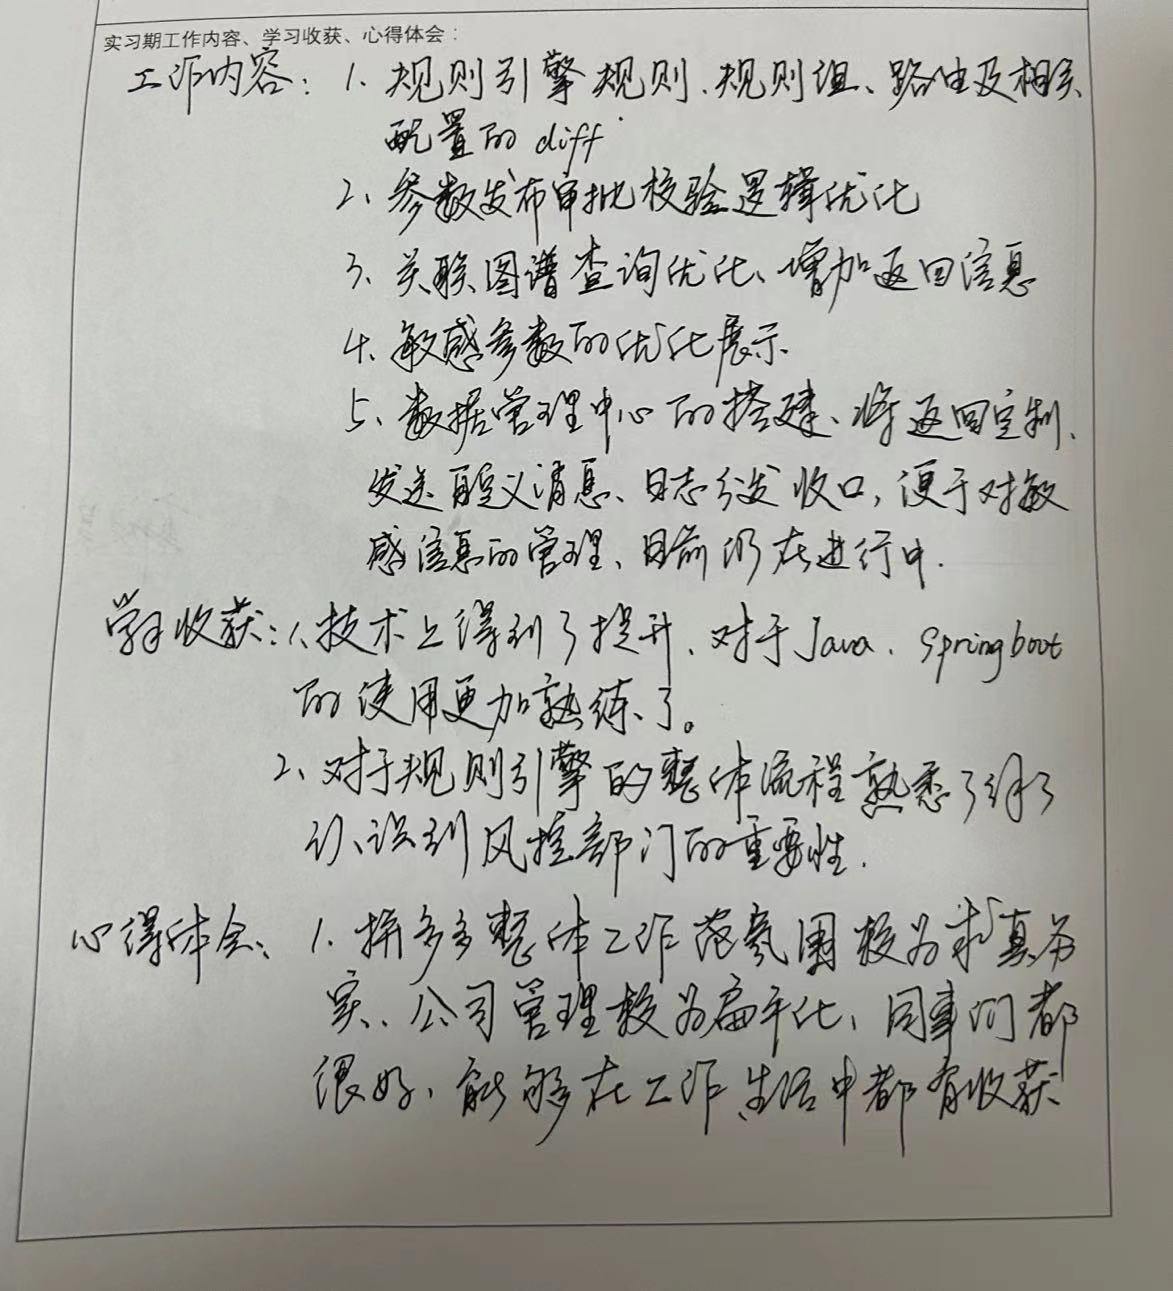 实习期工作内容、学习收获、心得体会：
工作内容：1. 规则引擎规则、规则组、路由及相关
配置的 diff
2、参数发布审批校验逻辑优化
3、关联图谱查询优化、增加返回信息
4、敏感参数的优化展示
5、数据管理中心的搭建、将返回定制、
发送自定义消息、日志分发收口，便于对敏
感信息的管理、目前仍在进行中.
学习收获：1、技术上得到了提升、对于Java、Springboot
的使用更加熟练了。
2、对于规则引擎的整体流程熟悉了
认识到风控部门的重要性.
心得体会、1. 拼多多整体工作范氛围较为求真务
实、公司管理较为扁平化、同事们都
很好、能够在工作生活中都有收获